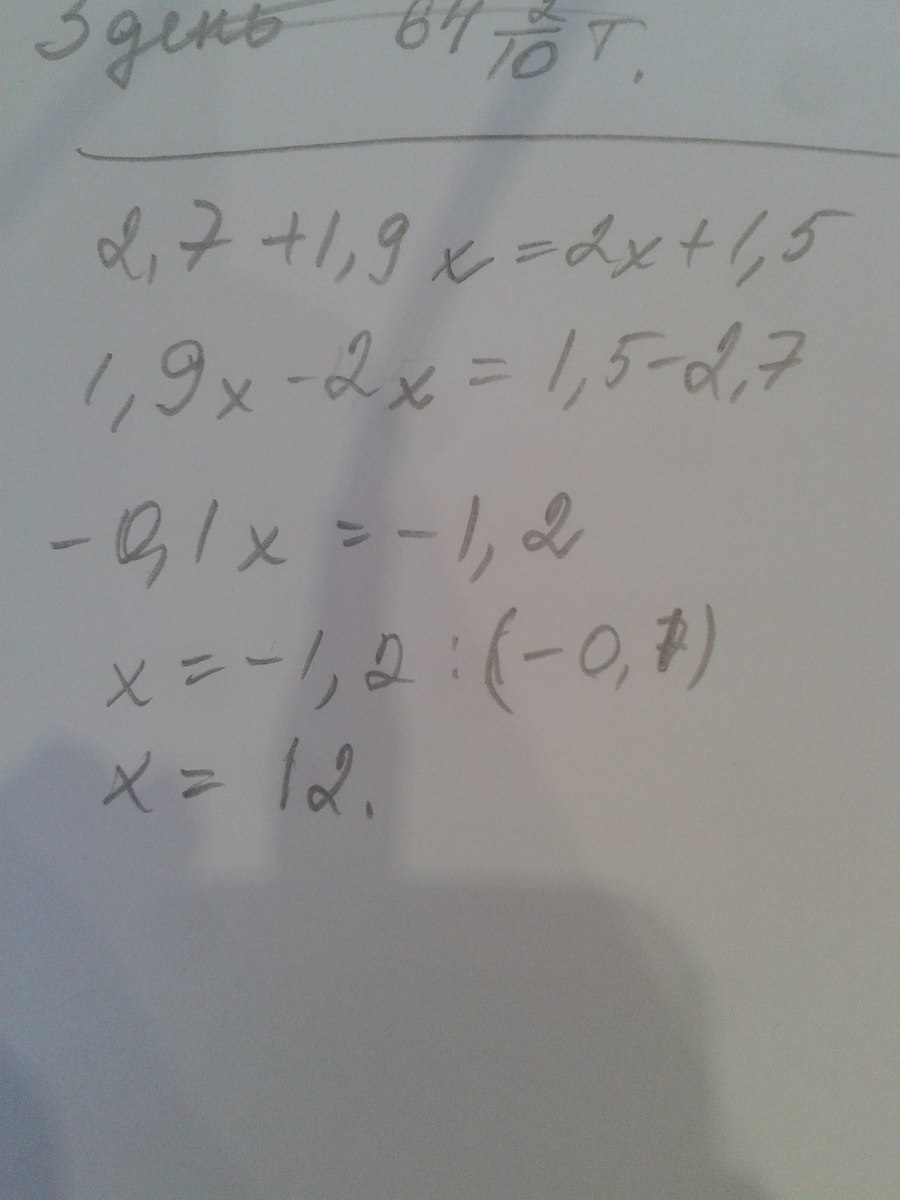 3 день 64 2/10 т.
2,7 + 1,9x = 2x + 1,5
1,9x - 2x = 1,5 - 2,7
- 0,1x = - 1,2
x = - 1,2 : (- 0,1)
x = 12.